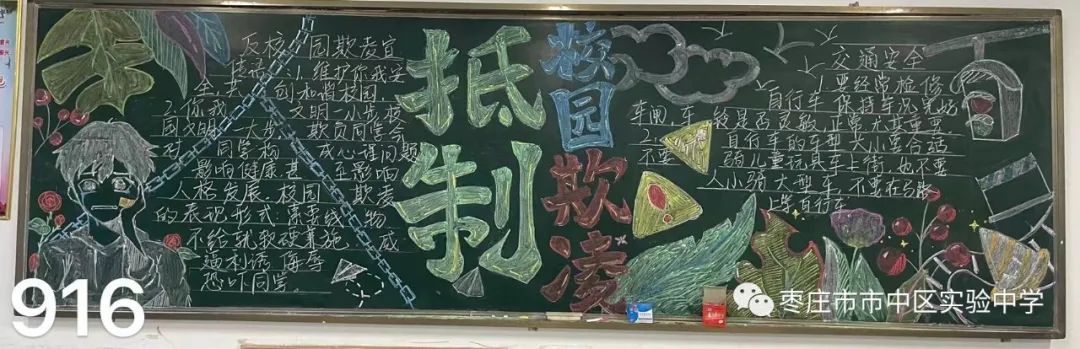 反校园欺凌宣
传语:1.维护你我安
全,共创和谐校园,
2.你我文明一小步,校
园文明一大步,欺负同学会
对同学构成心理问题
影响健康甚至影响
人格发展.校园欺凌
的表现形式:索要钱物
不给就软硬兼施、威
逼利诱、侮辱
恐吓同学.
抵制
校园欺凌
交通安全
1.要经常检修
自行车,保持车况完好
车闸、车铃是否灵敏、正常尤其重要.
2.自行车的车型大小要合适
不要骑儿童玩具车上街,也不要
人小骑大型车,不要在马路
上学自行车
916
枣庄市市中区实验中学